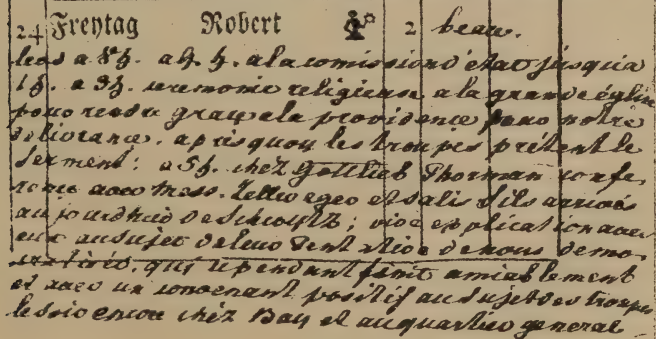 24 Freytag Robert 2 beau.
leos a 8 h. a 9. h. a la comission d'état jusqu'a
1 h. a 3 h. ceremonie religieuse a la grande église
pour rendre grace a la providence pour notre
delivrance. apres quoy les troupes prétent le
Serment: a 5 h. chez Gottlieb Thorman confe,
rence avec Mess. Zellweger et Salis Sils arrivés
aujourdhui de Schwytz; vive explication avec
eux au sujet de leur tentative de nous demo,
cratiser, qui cependant finit amiablement
et avec un convenant positif au sujet des troupes
le soir encor chez Bay et au quartier general